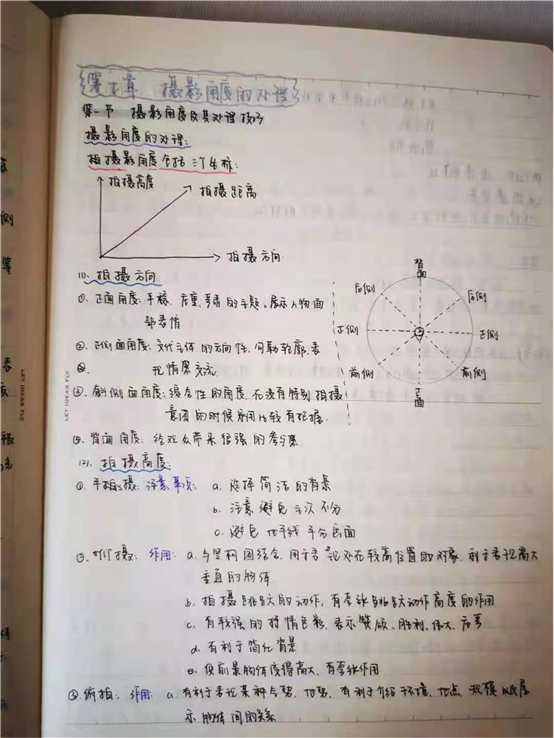 第五章 摄影角度的处理
第一节 摄影角度及其处理技巧
摄影角度的处理:
拍摄影角度包括三个坐标:
拍摄高度
拍摄距离
拍摄方向
(1). 拍摄方向
背面
后侧 后侧
正侧 正侧
前侧 前侧
正面
①. 正面角度: 平稳、庄重、严肃的主题。展示人物面
部表情
②. 正侧面角度: 交代主体的方向性, 勾勒轮廓、表
③. 现情景交流
③. 斜侧面角度: 综合性的角度, 在没有特别拍摄
意图的时候采用比较有把握.
④. 背面角度: 给观众带来很强的参与感
(2). 拍摄高度:
①. 平拍摄: 注意事项: a. 选择简洁的背景
b. 注意避免主次不分
c. 避免地平线平分画面
②. 仰摄: 作用: a. 与竖构图结合, 用于表现处在较高位置的对象, 利于表现高大
垂直的物体
b. 拍摄跳跃的动作, 有夸张跳跃动作高度的作用
c. 有较强的抒情色彩, 表示赞颂、胜利、伟大、庄严
d. 有利于简化背景
e. 使前景物体变得高大, 有夸张作用
③. 俯拍: 作用: a. 有利于表现景神与势、地势, 有利于介绍环境、地点、规模以及展
示物体间的关系
LET IDEAS FLY